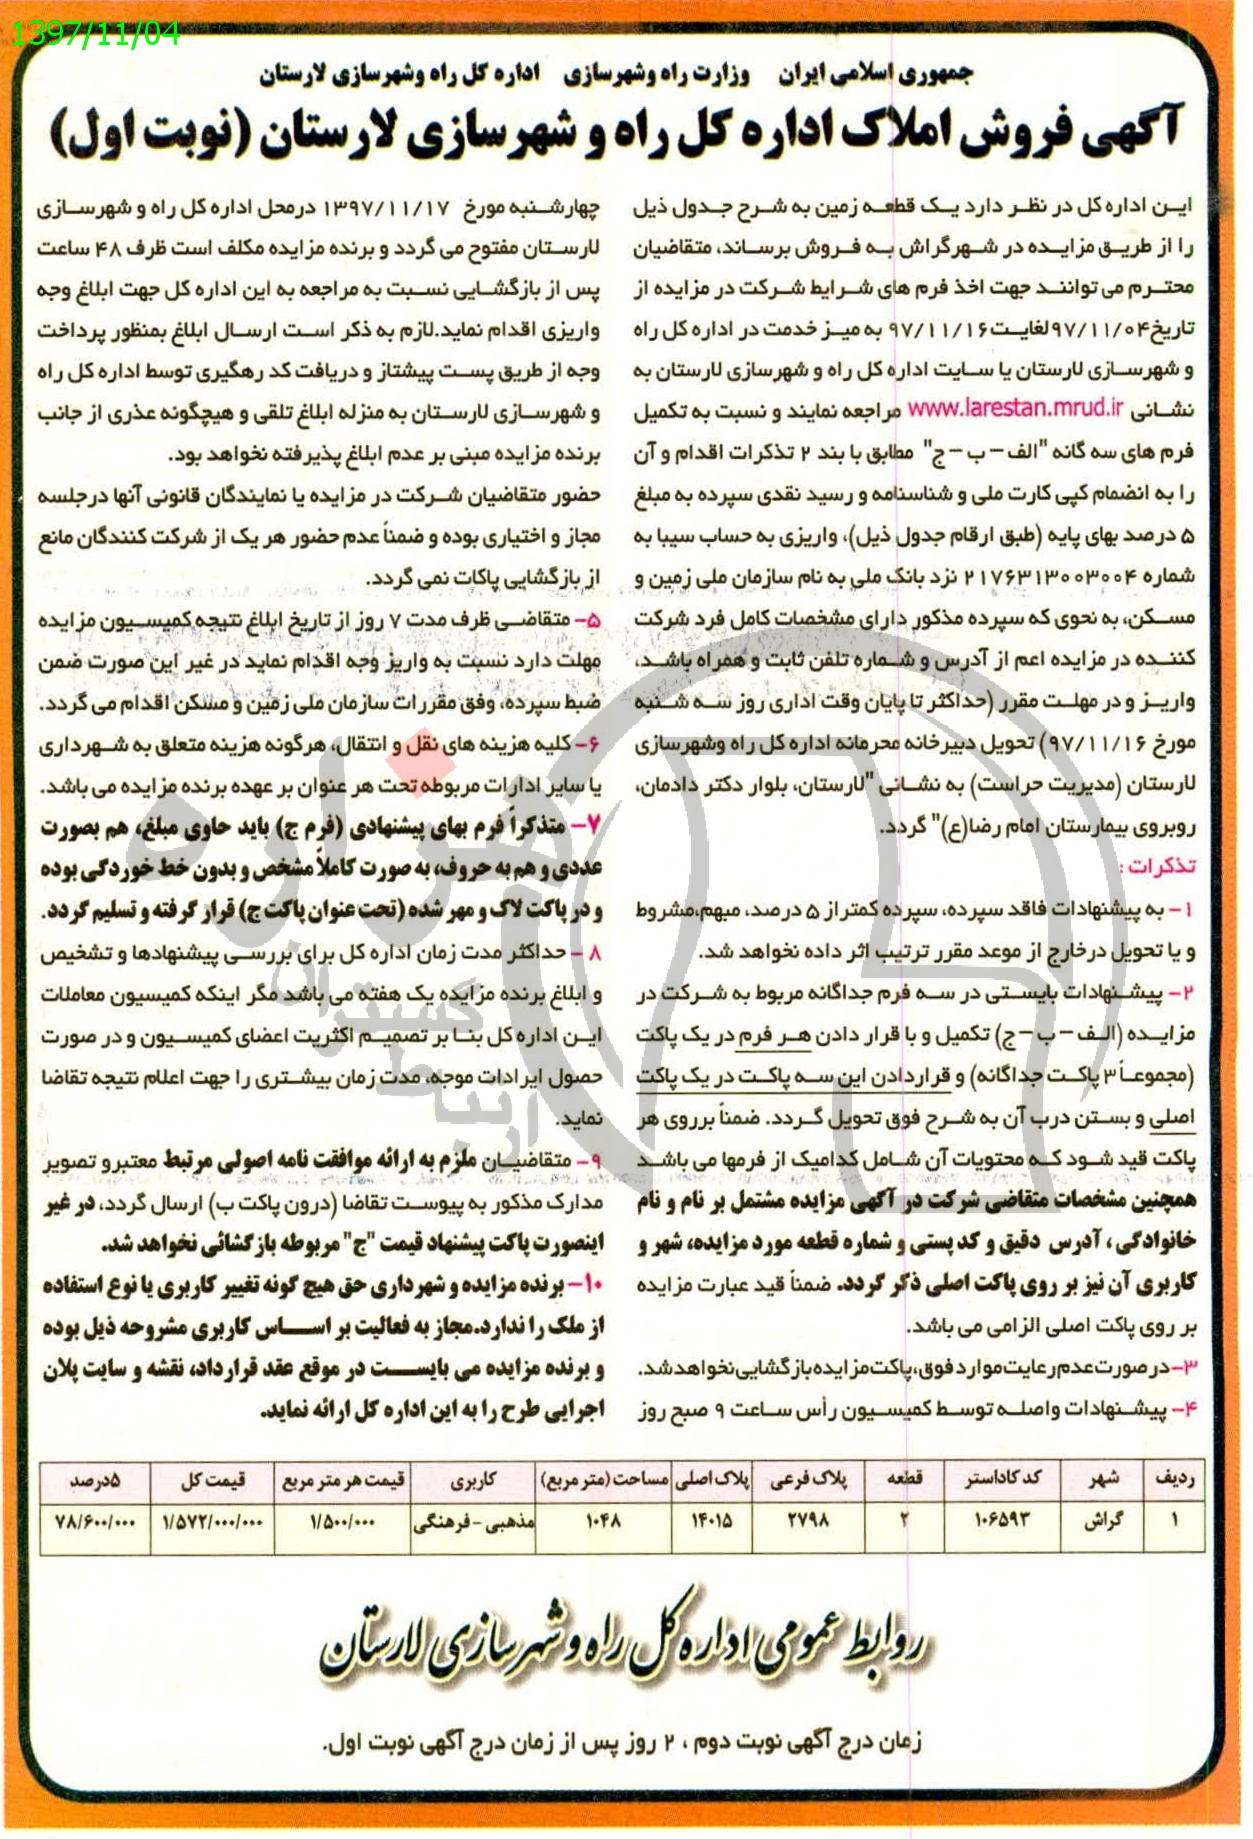 1397/11/04
جمهوری اسلامی ایران وزارت راه وشهرسازی اداره کل راه وشهرسازی لارستان
آگهی فروش املاک اداره کل راه و شهرسازی لارستان (نوبت اول)
ایـن اداره کل در نظـر دارد یـک قطعـه زمین به شـرح جـدول ذیل
را از طریـق مزایـده در شـهرگراش بـه فـروش برسـاند، متقاضیان
محتـرم می تواننـد جهت اخذ فرم های شـرایط شـرکت در مزایده از
تاریخ۹۷/۱۱/۰۴لغایـت۹۷/۱۱/۱۶ به میـز خدمت در اداره کل راه
و شهرسـازی لارستان یا سـایت اداره کل راه و شهرسازی لارستان به
نشـانی www.larestan.mrud.ir مراجعه نمایند و نسبت به تکمیل
فرم های سه گانه "الف – ب – ج" مطابق با بند ۲ تذکرات اقدام و آن
را به انضمام کپی کارت ملی و شناسنامه و رسید نقدی سپرده به مبلغ
۵ درصد بهای پایه (طبق ارقام جدول ذیل)، واریزی به حساب سیبا به
شماره ۲۱۷۶۳۱۳۰۰۳۰۰۴ نزد بانک ملی به نام سازمان ملی زمین و
مسـکن، به نحوی که سپرده مذکور دارای مشخصات کامل فرد شرکت
کننـده در مزایده اعم از آدرس و شـماره تلفن ثابت و همراه باشـد،
واریـز و در مهلـت مقرر (حداکثر تا پایان وقت اداری روز سـه شـنبه
مورخ ۹۷/۱۱/۱۶) تحویل دبیرخانه محرمانه اداره کل راه وشهرسازی
لارستان (مدیریت حراست) به نشـانی "لارستان، بلوار دکتر دادمان،
روبروی بیمارستان امام رضا(ع)" گردد.
تذکرات :
۱- به پیشنهادات فاقد سپرده، سپرده کمتر از ۵ درصد، مبهم،مشروط
و یا تحویل درخارج از موعد مقرر ترتیب اثر داده نخواهد شد.
۲- پیشـنهادات بایسـتی در سـه فرم جداگانه مربوط به شـرکت در
مزایـده (الـف – ب – ج) تکمیل و با قرار دادن هـر فرم در یک پاکت
(مجموعـاً ۳ پاکـت جداگانه) و قراردادن این سـه پاکـت در یک پاکت
اصلی و بستن درب آن به شـرح فوق تحویل گـردد. ضمناً برروی هر
پاکت قید شـود کـه محتویات آن شـامل کدامیک از فرمها می باشـد
همچنین مشخصات متقاضی شرکت در آگهی مزایده مشتمل بر نام و نام
خانوادگی ، آدرس دقیق و کد پستی و شماره قطعه مورد مزایده، شهر و
کاربری آن نیز بر روی پاکت اصلی ذکر گردد. ضمناً قید عبارت مزایده
بر روی پاکت اصلی الزامی می باشد.
۳-در صورت عدم رعایت موارد فوق،پاکت مزایده بازگشایی نخواهد شد.
۴- پیشـنهادات واصلـه توسـط کمیسـیون رأس سـاعت ۹ صبح روز
چهارشـنبه مورخ ۱۳۹۷/۱۱/۱۷ درمحل اداره کل راه و شهرسـازی
لارسـتان مفتوح می گردد و برنده مزایده مکلف است ظرف ۴۸ ساعت
پس از بازگشـایی نسـبت به مراجعه به این اداره کل جهت ابلاغ وجه
واریزی اقدام نماید.لازم به ذکر اسـت ارسـال ابلاغ بمنظور پرداخت
وجه از طریق پسـت پیشتاز و دریافت کد رهگیری توسط اداره کل راه
و شهرسـازی لارسـتان به منزله ابلاغ تلقی و هیچگونه عذری از جانب
برنده مزایده مبنی بر عدم ابلاغ پذیرفته نخواهد بود.
حضور متقاضیان شـرکت در مزایده یا نمایندگان قانونی آنها درجلسه
مجاز و اختیاری بوده و ضمناً عدم حضور هر یک از شرکت کنندگان مانع
از بازگشایی پاکات نمی گردد.
۵- متقاضـی ظرف مدت ۷ روز از تاریخ ابلاغ نتیجه کمیسـیون مزایده
مهلت دارد نسبت به واریز وجه اقدام نماید در غیر این صورت ضمن
ضبط سپرده، وفق مقررات سازمان ملی زمین و مسکن اقدام می گردد.
۶- کلیه هزینه های نقل و انتقال، هرگونه هزینه متعلق به شـهرداری
یا سایر ادارات مربوطه تحت هر عنوان بر عهده برنده مزایده می باشد.
۷- متذکراً فرم بهای پیشنهادی (فرم ج) باید حاوی مبلغ، هم بصورت
عددی و هم به حروف، به صورت کاملاً مشخص و بدون خط خوردگی بوده
و در پاکت لاک و مهر شده (تحت عنوان پاکت ج) قرار گرفته و تسلیم گردد.
۸ - حداکثر مدت زمان اداره کل برای بررسـی پیشنهادها و تشخیص
و ابلاغ برنده مزایده یک هفته می باشد مگر اینکه کمیسیون معاملات
ایـن اداره کل بنـا بر تصمیـم اکثریت اعضای کمیسـیون و در صورت
حصول ایرادات موجه، مدت زمان بیشـتری را جهت اعلام نتیجه تقاضا
نماید.
۹- متقاضیـان ملزم به ارائه موافقت نامه اصولی مرتبط معتبرو تصویر
مدارک مذکور به پیوسـت تقاضا (درون پاکت ب) ارسال گردد، در غیر
اینصورت پاکت پیشنهاد قیمت "ج" مربوطه بازگشائی نخواهد شد.
۱۰- برنده مزایده و شهرداری حق هیچ گونه تغییر کاربری یا نوع استفاده
از ملک را ندارد.مجاز به فعالیت بر اسـاس کاربری مشروحه ذیل بوده
و برنده مزایده می بایسـت در موقع عقد قرارداد، نقشه و سایت پلان
اجرایی طرح را به این اداره کل ارائه نماید.
ردیف شهر کد کاداستر قطعه پلاک فرعی پلاک اصلی مساحت (متر مربع) کاربری قیمت هر متر مربع قیمت کل ۵درصد
۱ گراش ۱۰۶۵۹۳ ۲ ۲۷۹۸ ۱۴۰۱۵ ۱۰۴۸ مذهبی -فرهنگی ۱/۵۰۰/۰۰۰ ۱/۵۷۲/۰۰۰/۰۰۰ ۷۸/۶۰۰/۰۰۰
روابط عمومی اداره کل راه و شهرسازی لارستان
زمان درج آگهی نوبت دوم ، ۲ روز پس از زمان درج آگهی نوبت اول.